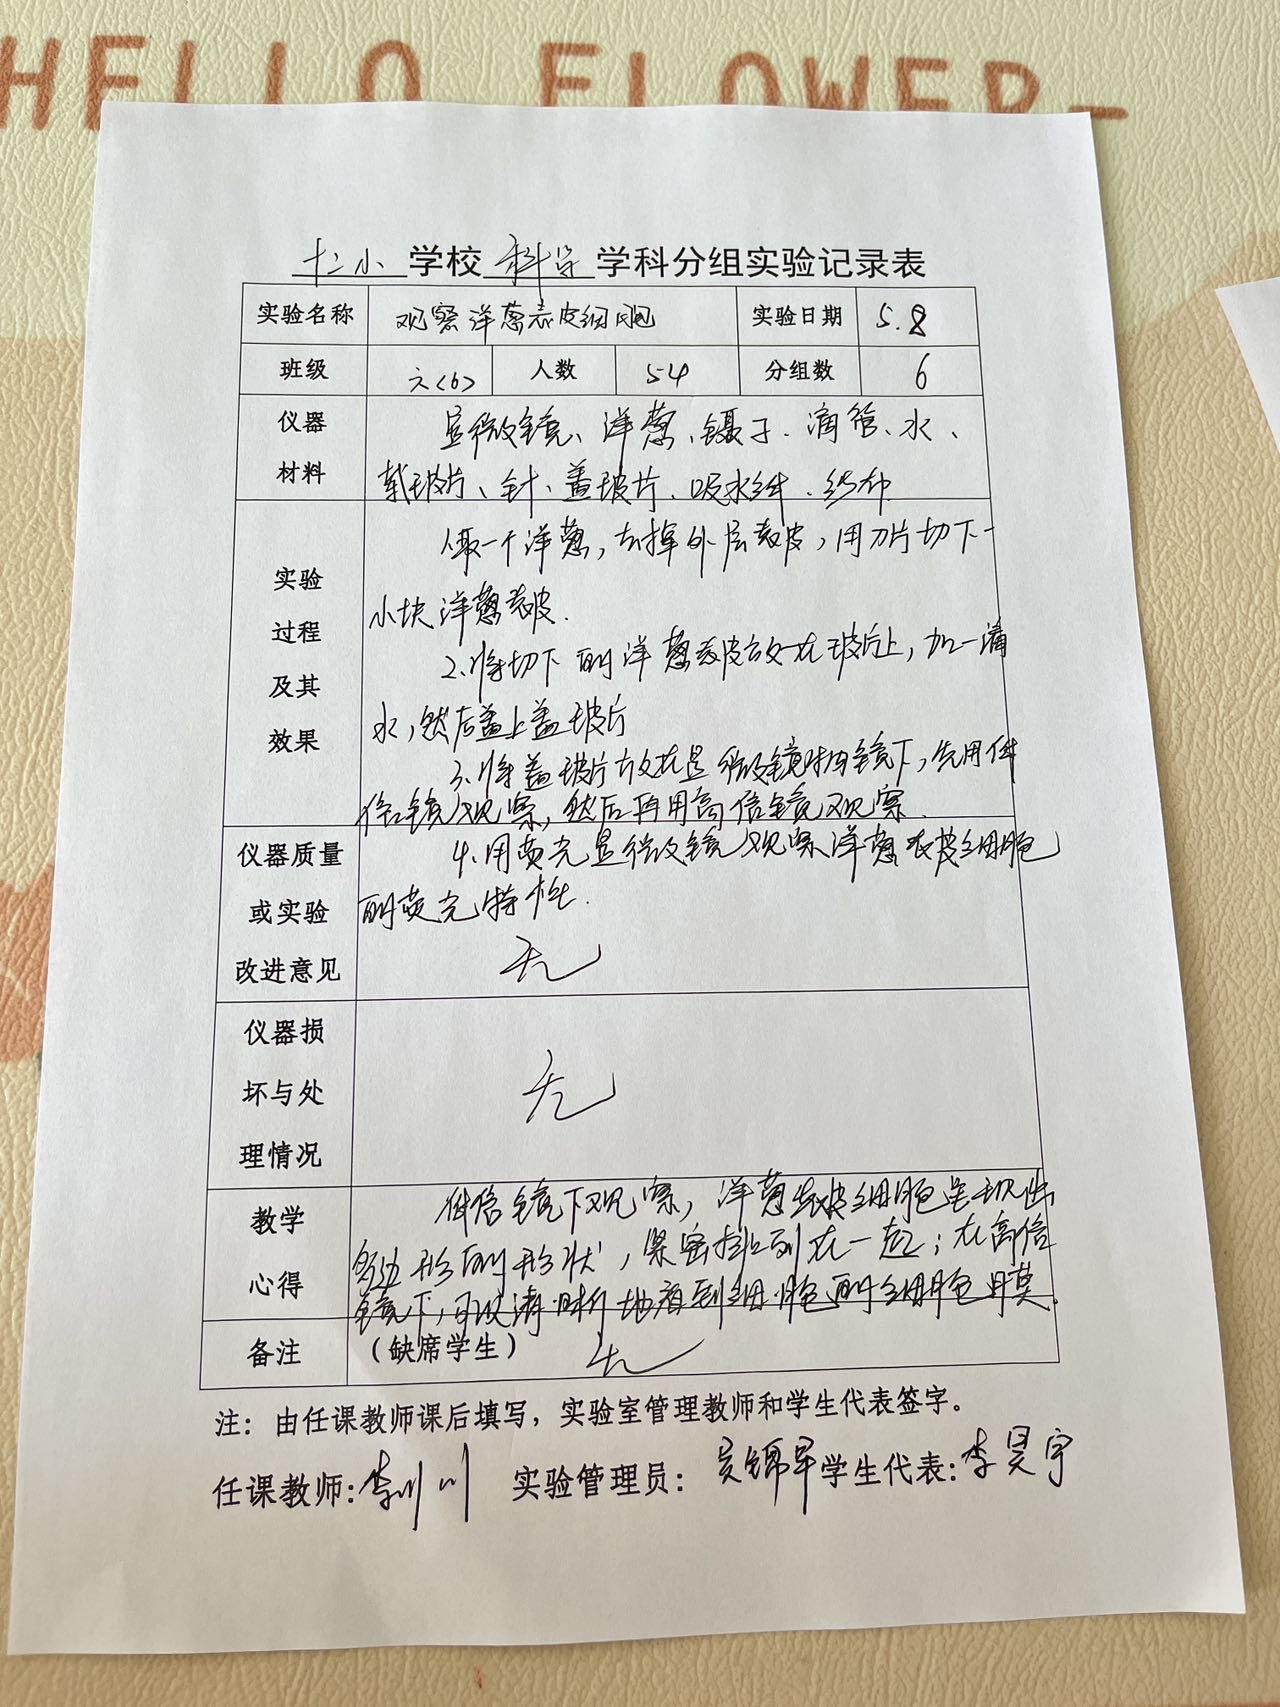 HELLO FLOWER-
十二小 学校 科学 学科分组实验记录表
实验名称 观察洋葱表皮细胞 实验日期 5.8
班级 六(6) 人数 54 分组数 6
仪器 显微镜、洋葱、镊子、滴管、水、
材料 载玻片、针、盖玻片、吸水纸、纱布
1.取一个洋葱,去掉外层表皮,用刀片切下一
实验
小块洋葱表皮.
过程
2.将切下的洋葱表皮放在玻片上,加一滴
及其
水,然后盖上盖玻片
效果
3.将盖玻片放在显微镜物镜下,先用低
倍镜观察,然后再用高倍镜观察.
仪器质量 4.用荧光显微镜观察洋葱表皮细胞
或实验 的荧光特性.
改进意见 无
仪器损
坏与处 无
理情况
教学 低倍镜下观察,洋葱表皮细胞呈现出
多边形的形状,紧密排列在一起;在高倍
心得
镜下,可以清晰地看到细胞的细胞膜.
备注 (缺席学生) 无
注:由任课教师课后填写,实验室管理教师和学生代表签字。
任课教师:李川川 实验管理员: 吴锦早 学生代表:李昊宇